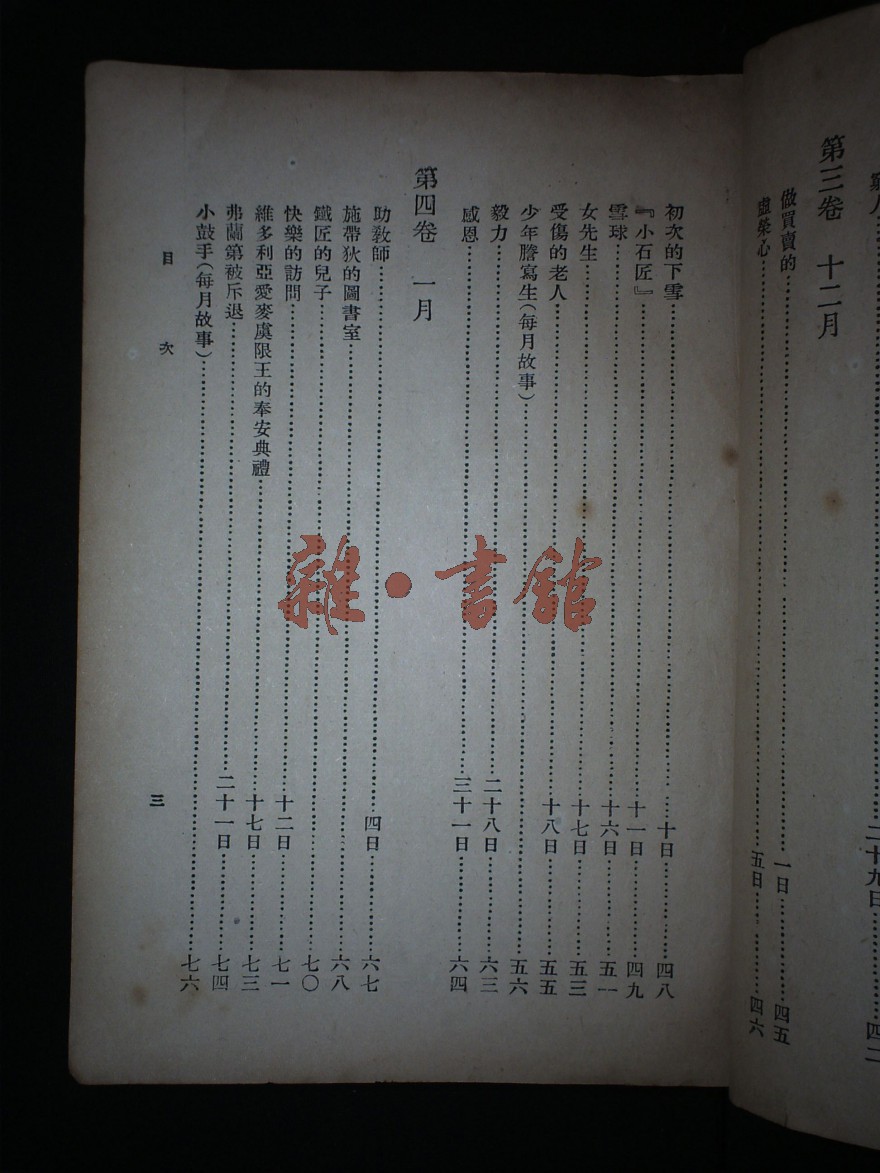 二十九日……四二
第三卷　十二月
做買賣的……一日……四五
虛榮心……五日……四六
初次的下雪……十日……四八
『小石匠』……十一日……四九
雪球……十六日……五一
女先生……十七日……五三
受傷的老人……十八日……五五
少年謄寫生(每月故事)……五六
毅力……二十八日……六三
感恩……三十一日……六四
第四卷　一月
助教師……四日……六七
施帶狄的圖書室……六八
鐵匠的兒子……七〇
快樂的訪問……十二日……七一
維多利亞愛麥虞限王的奉安典禮……十七日……七三
弗蘭第被斥退……二十一日……七四
小鼓手(每月故事)……七六
目次
三
雜·書館